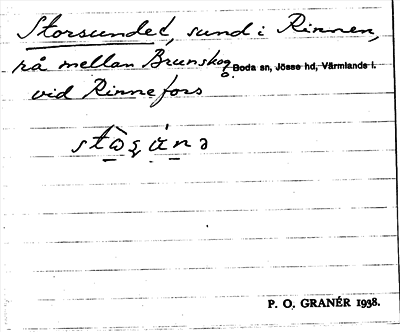 Storsundet, sund i Rinnen,
rå mellan Brunskog o. Boda sn, Jösse hd, Värmlands l.
vid Rinnefors
P. O. GRANÉR 1938.